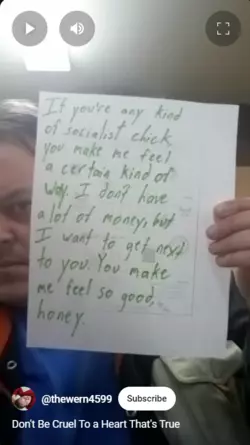 If you're any kind
of socialist chick,
you make me feel
a certain kind of
way. I don't have
a lot of money, but
I want to get next
to you. You make
me feel so good,
honey.
@thewern4599
Subscribe
Don't Be Cruel To a Heart That's True